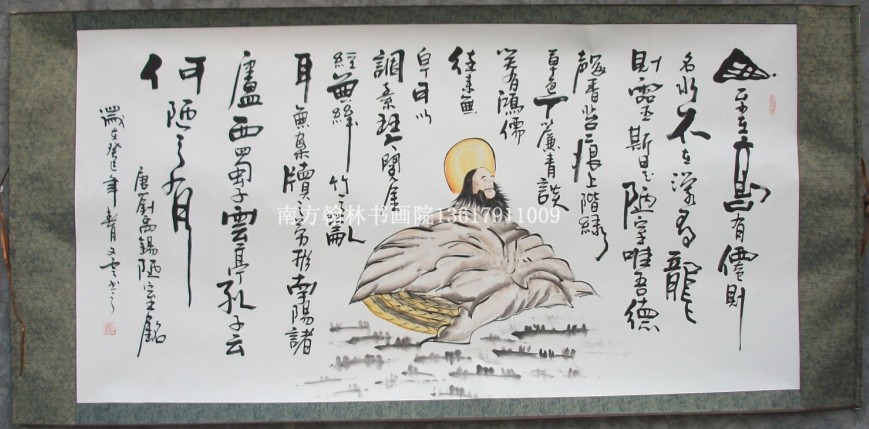 山不在高有僊則
名水不在深有龍
則靈斯是陋室唯吾德
馨香苔痕上階綠
草色下簾青談
笑有鴻儒
往來無
白丁可以
調素琴閱金
經無絲竹之亂
耳無案牘之勞形南陽諸
廬西蜀子雲亭孔子云
何陋之有
唐劉禹錫陋室銘
歲在癸巳年春月文雲書之
南方翰林书画院13617911009